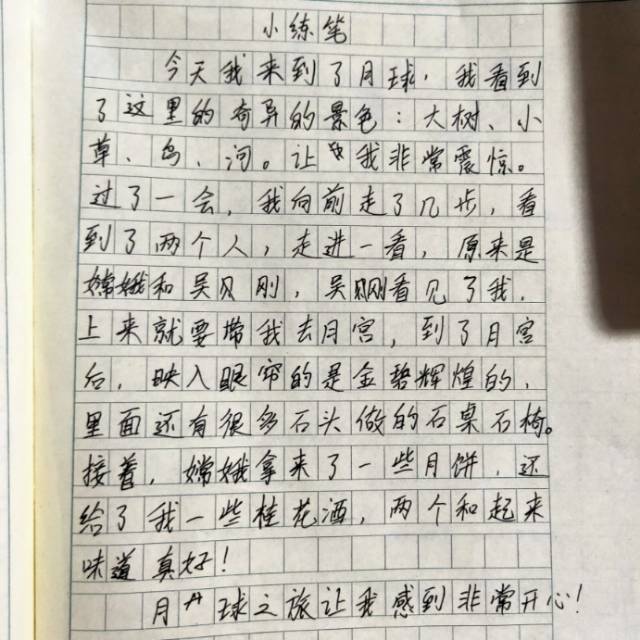 小练笔
今天我来到了月球，我看到
了这里的奇异的景色：大树、小
草、鸟、河。让我非常震惊。
过了一会，我向前走了几步，看
到了两个人，走进一看，原来是
嫦娥和吴刚，吴刚看见了我，
上来就要带我去月宫，到了月宫
后，映入眼帘的是金碧辉煌的，
里面还有很多石头做的石桌石椅。
接着，嫦娥拿来了一些月饼，还
给了我一些桂花酒，两个和起来
味道真好！
月球之旅让我感到非常开心！